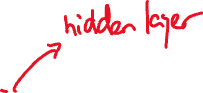 hidden layer